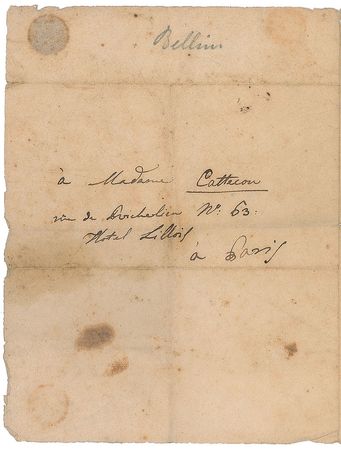 Bellini
à Madame Cattacou
rue de Richelieu Nº: 63.
Hotel Lillois
à Paris